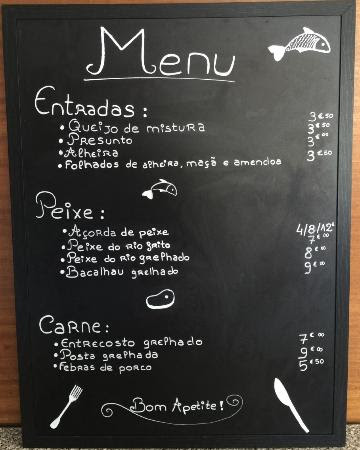 Menu
Entradas:
• Queijo de mistura 3€50
• Presunto 3€50
• Alheira 3€00
• Folhados de alheira, maçã e amendoa 3€60
Peixe:
• Açorda de peixe 4/8/12€
• Peixe do rio frito 7€00
• Peixe do rio grelhado 8€00
• Bacalhau grelhado 9€00
Carne:
• Entrecosto grelhado 7€00
• Posta grelhada 9€00
• Febras de porco 5€50
Bom Apetite!